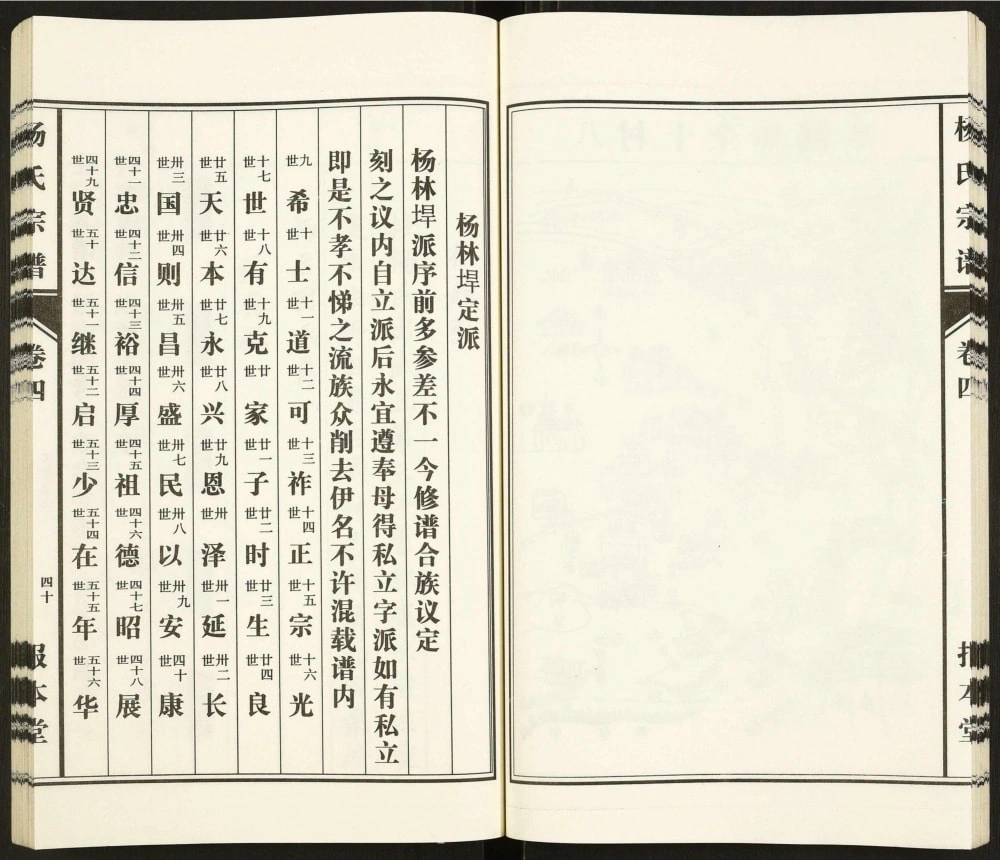 杨氏宗谱
卷四
报本堂
杨林垾定派
杨林垾派序前多参差不一今修谱合族议定
刻之议内自立派后永宜遵奉母得私立字派如有私立
即是不孝不悌之流族众削去伊名不许混载谱内
九世希 十世士 十一世道 十二世可 十三世祚 十四世正 十五世宗 十六世光
十七世世 十八世有 十九世克 廿世家 廿一世子 廿二世时 廿三世生 廿四世良
廿五世天 廿六世本 廿七世永 廿八世兴 廿九世恩 卅世泽 卅一世延 卅二世长
卅三世国 卅四世则 卅五世昌 卅六世盛 卅七世民 卅八世以 卅九世安 四十世康
四十一世忠 四十二世信 四十三世裕 四十四世厚 四十五世祖 四十六世德 四十七世昭 四十八世展
四十九世贤 五十世达 五十一世继 五十二世启 五十三世少 五十四世在 五十五世年 五十六世华
杨氏宗谱
卷四
四十
报本堂